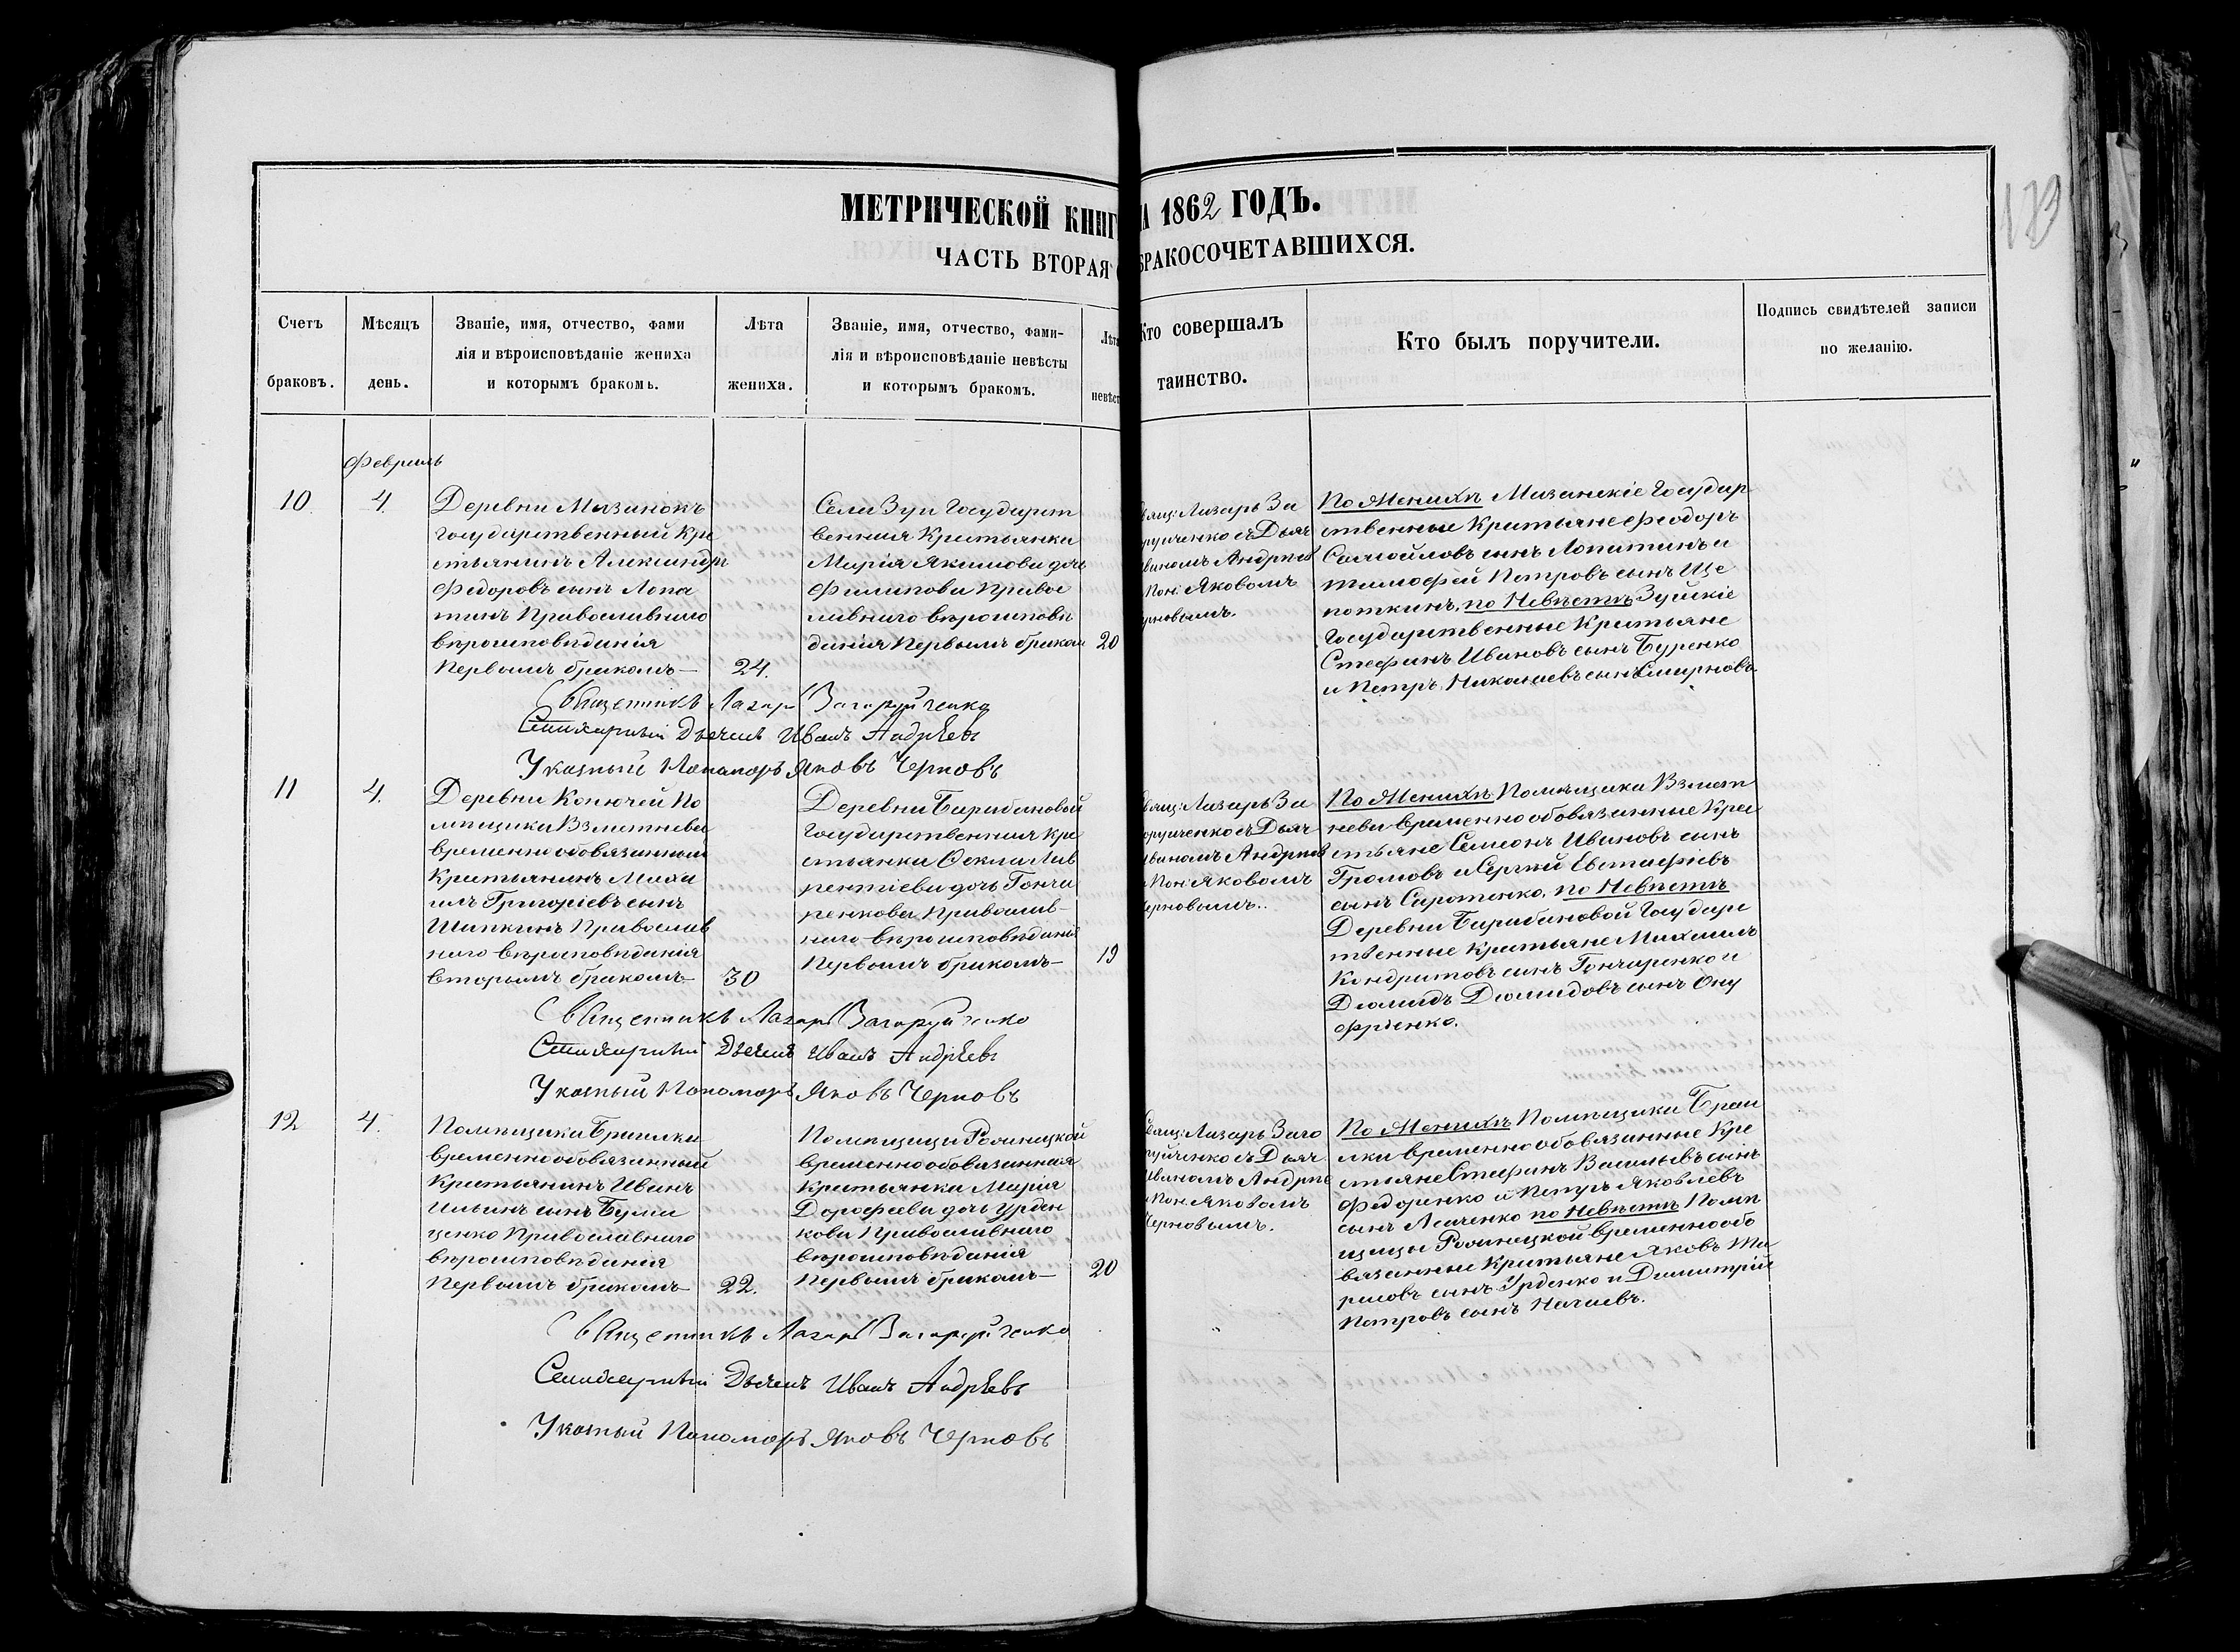 МЕТРИЧЕСКОЙ КНИГ
А 1862 ГОДЪ.
ЧАСТЬ ВТОРАЯ
БРАКОСОЧЕТАВШИХСЯ.
Счетъ
браковъ.
Мѣсяцъ
день.
Званіе, имя, отчество, фами
лія и вѣроисповѣданіе жениха
и которымъ бракомъ.
Лѣта
жениха.
Званіе, имя, отчество, фами-
лія и вѣроисповѣданіе невѣсты
и которымъ бракомъ.
Лѣта
невѣст
Кто совершалъ
таинство.
Кто былъ поручители.
Подпись свидѣтелей записи
по желанію.
Февраль
10.
4.
Деревни Мазанокъ
государственный Кре
стьянинъ Александръ
Федоровъ сынъ Лопа
тинъ Православнаго
вѣроисповѣданія
Первымъ бракомъ—
24.
Села Зуи Государст
венная Крестьянка
Марія Якимова дочь
Филипова Правос
лавнаго вѣроисповѣ
данія Первымъ браком
20
Свящ: Лазарь За
горуйченко съ Дьяч
Иваномъ Андреев
и Пон: Яковомъ
Черновымъ.
По Женихѣ Мазанскіе Государ
ственные Крестьяне Феодоръ
Самойловъ сынъ Лопатинъ и
Тимофей Петровъ сынъ Ще
поткинъ, по Невѣстѣ Зуйскіе
Государственные Крестьяне
Стефанъ Ивановъ сынъ Буренко
и Петръ Николаевъ сынъ Смирновъ.
Священникъ Лазарь Загоруйченко
Дьячекъ Иванъ Андрѣевъ
Указный Пономарь Яковъ Черновъ
11
4.
Деревни Конючей По
мѣщика Взметнева
временнообовязанный
Крестьянинъ Миха
илъ Григоріевъ сынъ
Шапкинъ Православ
наго вѣроисповѣданія
вторымъ бракомъ—
30
Деревни Барабановой
Государственная Кре
стьянка Ѳекла Лав
рентіева дочь Гонча
ренкова Православ-
наго вѣроисповѣданія
Первымъ бракомъ—
19
Свящ: Лазарь За
горуйченко съ Дьяч
Иваномъ Андреев
и Пон: Яковомъ
Черновымъ.
По Женихѣ Помѣщика Взмет
нева временнообовязанные Кре
стьяне Семіонъ Ивановъ сынъ
Громовъ и Сергѣй Евстафіевъ
сынъ Сиротенко, по Невѣстѣ
Деревни Барабановой Государс
твенные Крестьяне Михаилъ
Кондратовъ сынъ Гончаренко и
Діомидъ Діомидовъ сынъ Ону
фріенко.
Священникъ Лазарь Загоруйченко
Дьячекъ Иванъ Андрѣевъ
Указный Пономарь Яковъ Черновъ
12
4.
Помѣщика Браилки
временнообовязанный
Крестьянинъ Иванъ
Ильинъ сынъ Бума
ценко Православнаго
вѣроисповѣданія
Первымъ бракомъ—
22.
временнообовязанная
Крестьянка Марія
Дорофеева дочь Урден
кова Православнаго
вѣроисповѣданія
Первымъ бракомъ—
20
Свящ: Лазарь Заго
руйченко съ Дьяч
Иваномъ Андрее
и Пон: Яковомъ
Черновымъ.
По Женихѣ Помѣщика Браи
лки временнообовязанные Кре
стьяне Стефанъ Васильевъ сынъ
Федоренко и Петръ Яковлевъ
сынъ Лсиченко по Невѣстѣ Помѣ
щицы временнообо
вязанные Крестьяне Яковъ Ма
рковъ сынъ Урденко и Димитрій
Петровъ сынъ Начаевъ.
Священникъ Лазарь Загоруйченко
Дьячекъ Иванъ Андрѣевъ
Указный Пономарь Яковъ Черновъ